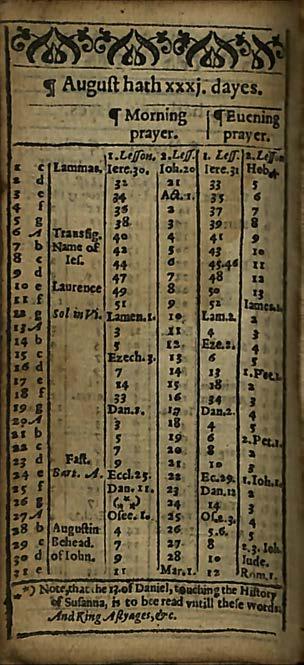 ¶ Auguſt hath xxxj. dayes.
¶ Morning prayer. ¶ Euening prayer.
1. Leſſon. 2. Leſſ. 1. Leſſ. 2. Leſſon
1 c Lammas. Iere.30. Ioh.20 Iere.31 Heb.4.
2 d 32 21 33 5
3 e 34 Act.1. 35 6
4 f 36 2 37 7
5 g 38 3 39 8
6 A Transfig. 40 4 41 9
7 b Name of 42 5 43 10
8 c Ieſ. 44 6 45.46 11
9 d 47 7 48 12
10 e Laurence 49 8 50 13
11 f 51 9 52 Iames.1.
12 g Sol in Vi. Lamen.1. 10 Lam.2. 2
13 A 3 11 4 3
14 b 5 12 Eze.2. 4
15 c Ezech.3. 13 6 5
16 d 7 14 13 1.Pet.1.
17 e 14 15 18 2
18 f 33 16 34 3
19 g Dan.1. 17 Dan.2. 4
20 A 3 18 4 5
21 b 5 19 6 2.Pet.1.
22 c 7 20 8 2
23 d Faſt. 9 21 10 3
24 e Bart. A. Eccl.25. 22 Ec.29. 1.Ioh.1.
25 f Dan.11. 23 Dan.12 2
26 g (*⁎*) 24 14 3
27 A Oſee.1. 25 Oſ.2.3. 4
28 b Auguſtin 4 26 5.6. 5
29 c Behead. 7 27 8 2.3.Ioh.
30 d of Iohn. 9 28 10 Iude.
31 e 11 Mat.1. 12 Rom.1.
*⁎*) Note, that the 13. of Daniel, touching the Hiſtory
of Suſanna, is to bee read vntill theſe words,
And King Aſtyages, &c.